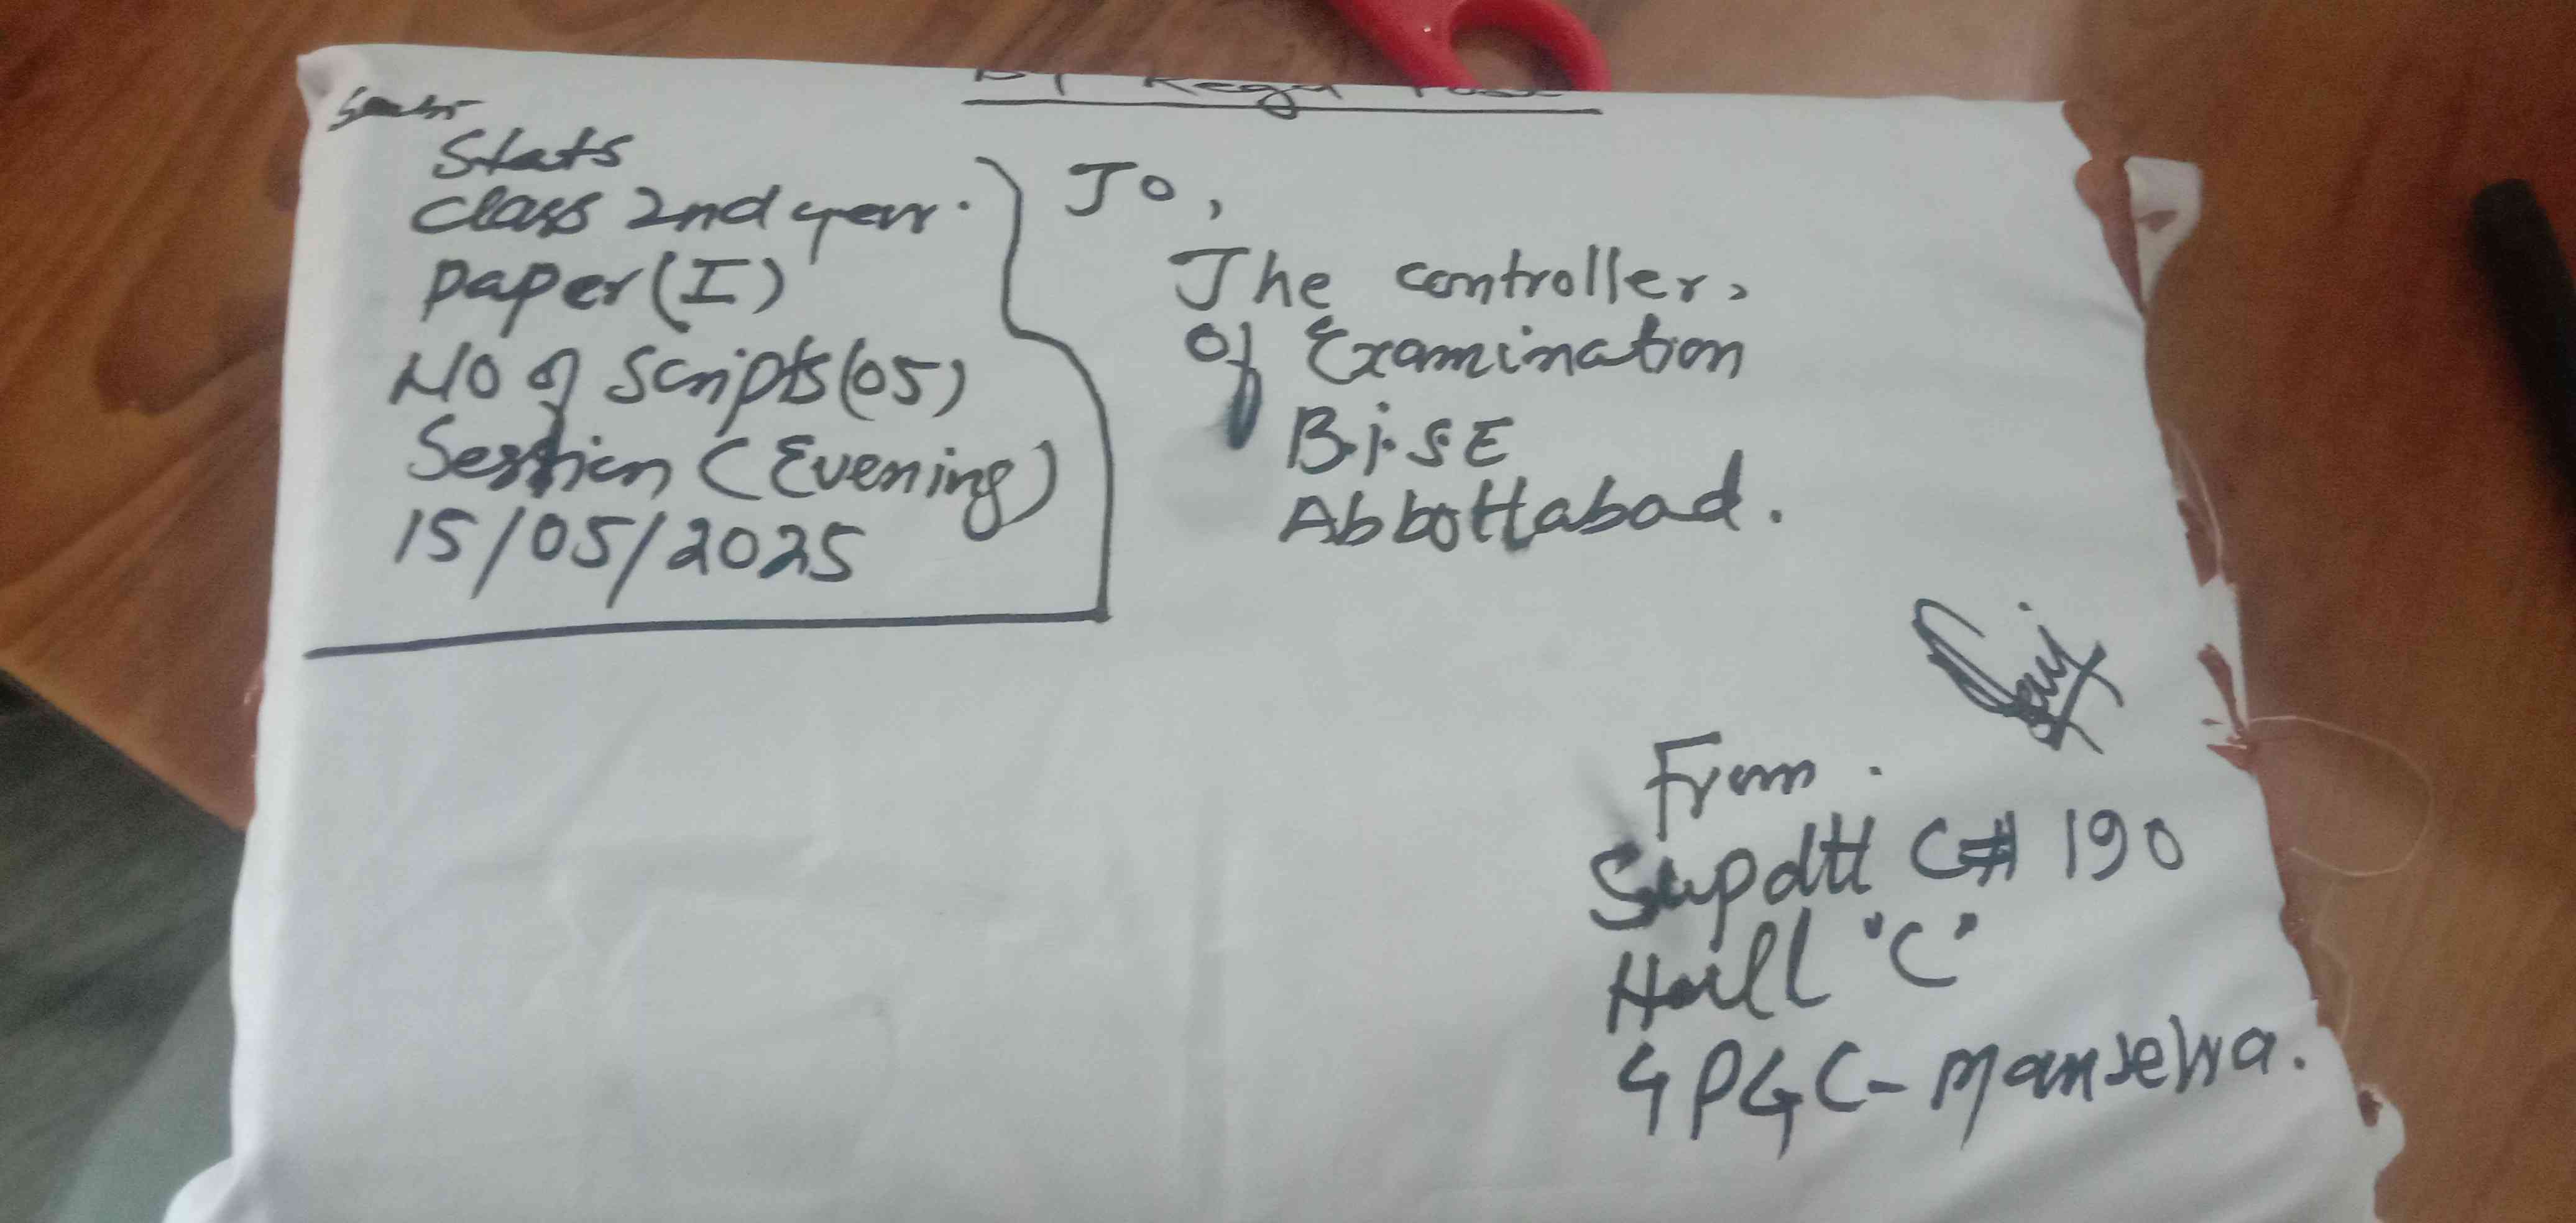 By Regd Post
Stats
Class 2nd year.
Paper (I)
NO of Scripts (05)
Session (Evening)
15/05/2025
To,
The controller,
Of Examination
B.i.S.E
Abbottabad.
From.
Supdtt C# 190
Hall "C"
GPGC - Mansehra.